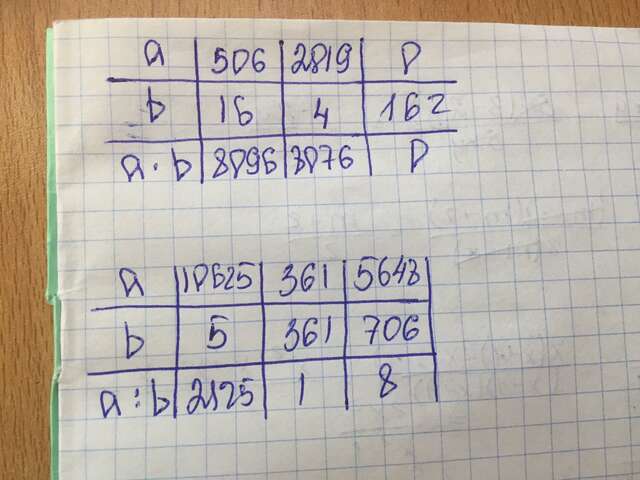 a 506 2819 0
b 16 4 162
a · b 8096 3076 0
a 10625 361 5648
b 5 361 706
a : b 2125 1 8